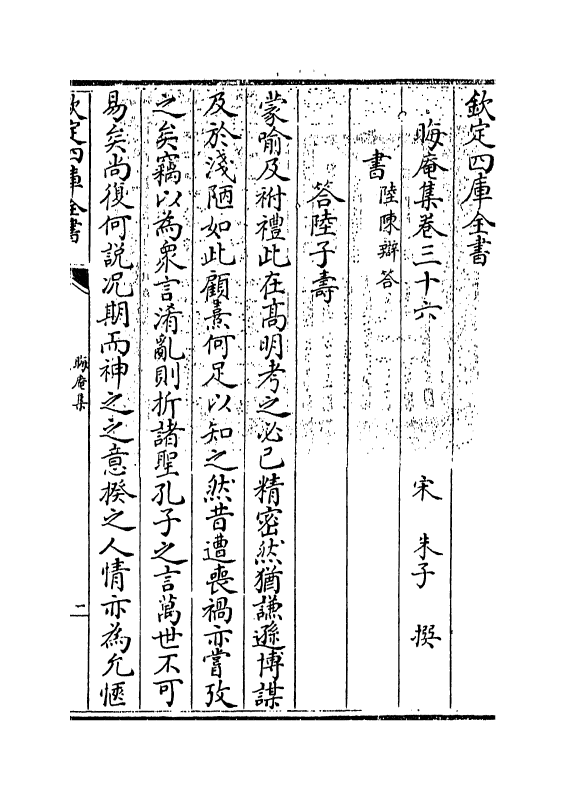 欽定四庫全書
晦庵集卷三十六
宋　朱子　撰
書陸陳辯答
答陸子壽
蒙喻及祔禮此在髙明考之必已精密然猶謙遜博謀
及於淺陋如此顧熹何足以知之然昔遭喪禍亦嘗攷
之矣竊以為衆言淆亂則折諸聖孔子之言萬世不可
易矣尚復何説况期而神之之意揆之人情亦為允愜
欽定四庫全書
晦庵集